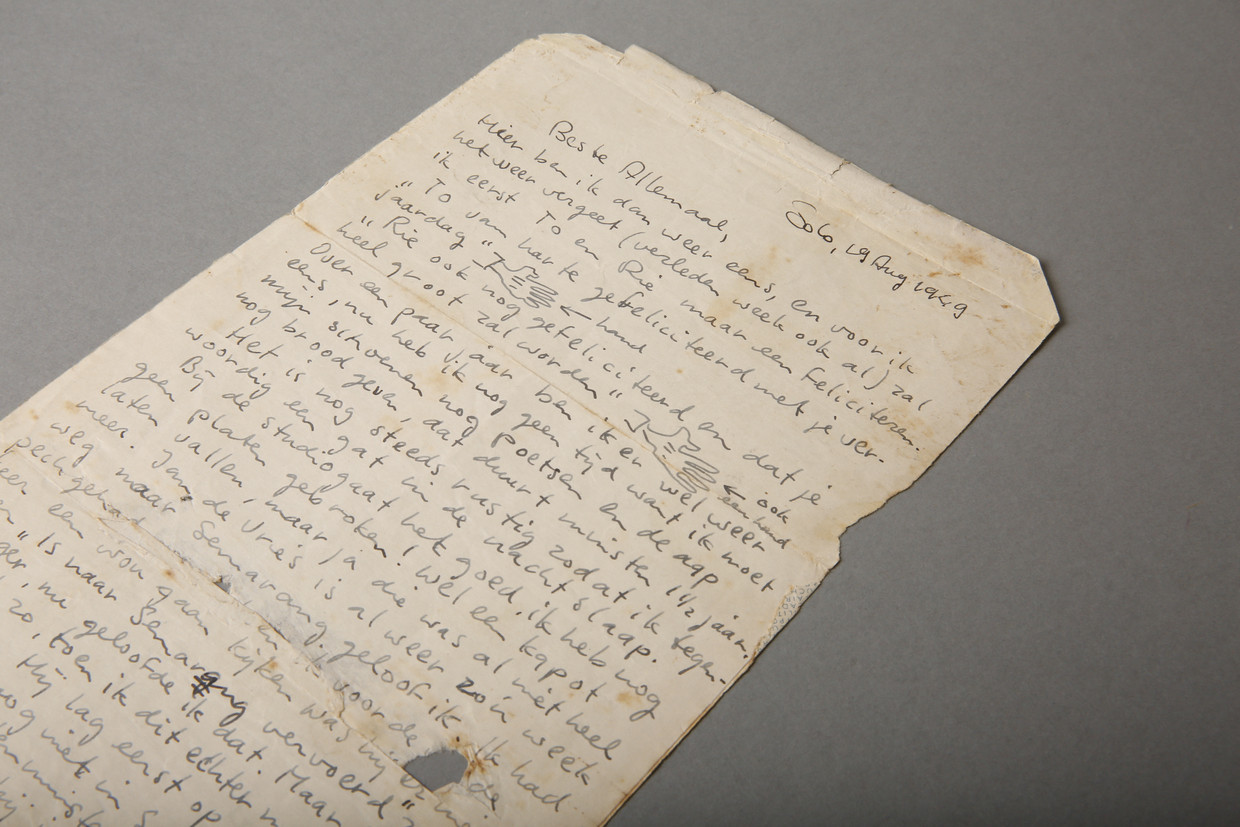 Solo, 19 Aug 1949
Beste Allemaal,
Hier ben ik dan weer eens, en voor ik
het weer vergeet (verleden week ook al) zal
ik eerst To en Rie maar een feliciteren.
„ To van harte gefeliciteerd met je ver-
jaardag " ← hand
„ Rie ook nog gefeliciteerd en dat je
heel groot zal worden " ← ook een hand
Over een paar jaar ben ik er wel weer
eens, nu heb ik nog geen tijd want ik moet
mijn schoenen nog poetsen en de aap
nog brood geven, dat duurt minsten 1½ jaar.
Het is nog steeds rustig zodat ik tegen-
woordig een gat in de nacht slaap.
Bij de studio gaat het goed, ik heb nog
geen platen gebroken, wel een kapot
laten vallen, maar ja die was al niet heel
meer. Jan de Vries is al weer zo'n week
weg naar Semarang, geloof ik. Ik had
pech gehad voor de
een gaan kijken was hij
„ is naar Semarang vervoerd "
nu geloofde ik dat. Maar
zo, toen ik dit echter
Hij lag eerst op
nog niet in